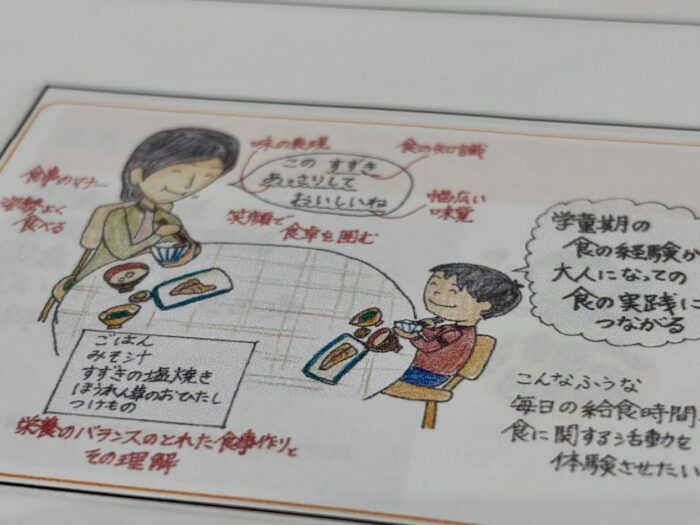 味の表現
食の知識
この すずき
あっさりして
おいしいね
食事のマナー
姿勢よく
食べる
幅広い
味覚
笑顔で
食卓を囲む
学童期の
食の経験が
大人になっての
食の実践に
つながる
ごはん
みそ汁
すずきの塩焼き
ほうれん草のおひたし
つけもの
栄養のバランスのとれた食事作りと
その理解
こんなふうな
毎日の給食時間
食に関する活動を
体験させたい